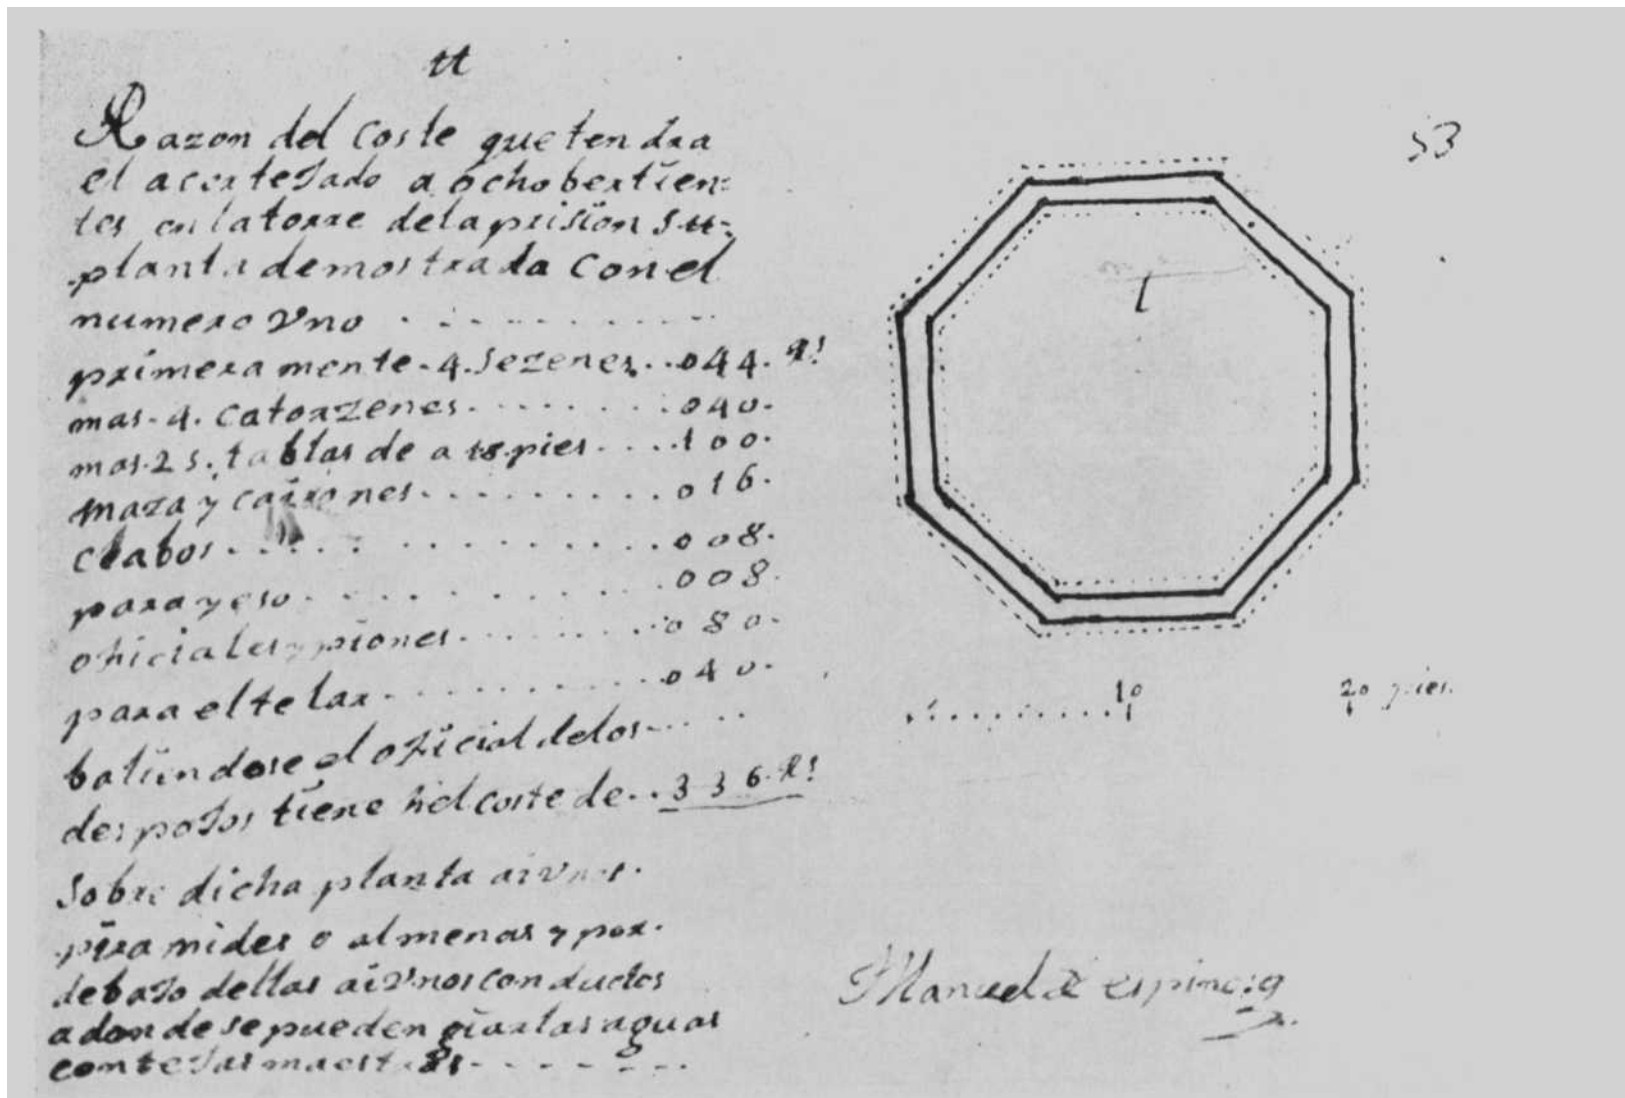 tt
Razon del coste que tendra
el acertesado a ocho bertien=
tes en la torre de la prision su=
planta demostrada con el
numero vno . . . . . . . . . .
primera mente - 4. sezenes . . 044. Rs
mas - 4. catorzenes . . . . . . . 040.
mas. 25. tablas de a 18. pies . . . . 100.
maza y cairones . . . . . . . . 016.
clabos . . . . . . . . . . . . . 008.
para yeso . . . . . . . . . . . 008.
oficiales y piones . . . . . . . . 080.
para el telar . . . . . . . . . . 040.
batiendose el oficial de los . . . .
despojos tiene hel coste de . . 336. Rs
Sobre dicha planta ai vnas.
piramides o almenas y por.
debajo dellas ai vnos conductos
a donde se pueden giar las aguas
con tejas maestras - - - - - -
53
1
10
20 pies.
Manuel de espinosa